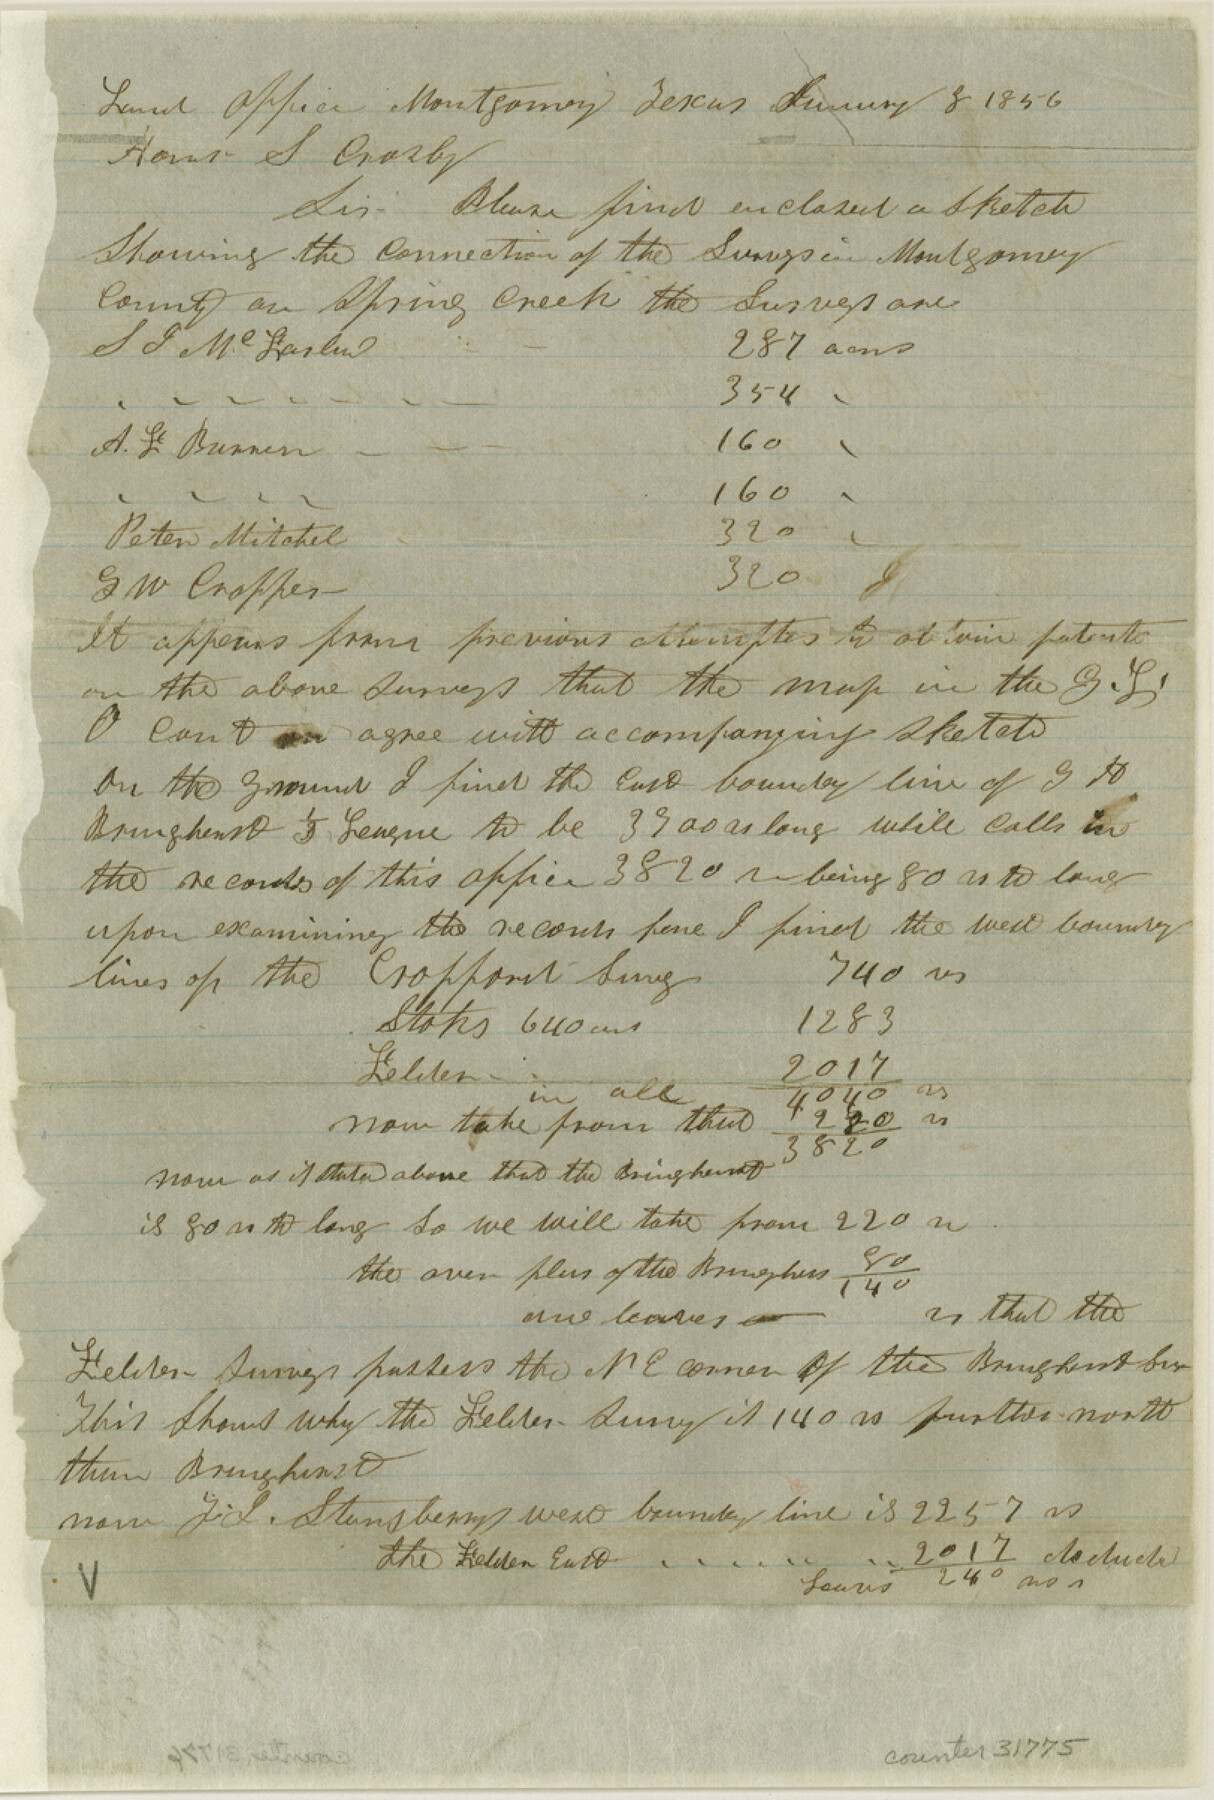 Land Office Montgomery Texas January 8 1856
Hons S Crosby
Sir Please find enclosed a Sketch
Showing the Connection of the Surveys in Montgomery
County on Spring Creek the Surveys are
S J McFarlin 287 acres
" " " " " " " 354 "
A. F Burren 160 "
" " " " 160 "
Peter Mitchel 320 "
G W Cropper 320
It appears from previous attemptes to obtain patents
on the above Surveys that the map in the G. L.
O Cant agree with accompanying Sketch
On the Ground I find the East boundry line of G H
Bringhurst 1/3 League to be 3900 vs long while Calls in
the records of this office 3820 vs being 80 vs to long
upon examining the records here I find the west boundry
lines of the Croppord Survey 740 vs
Stoks 640 acrs 1283
Felder 2017
in all 4040 vs
now take from that 220 vs
3820
now as is stated above that the Bringhurst
is 80 vs to long So we will take from 220 vs
the over plus of the Bringhurs 80
140
and leaves vs that the
Felder Survey passess the N E corner of the Bringhurst Sur
This Shows why the Felder Survey is 140 vs further north
than Bringhurst
now J. L. Stansberry west boundry line is 2257 vs
the Felder East " " " " " " 2017 deduct
Leaves 240 vrs
V
counter 31776
counter 31775